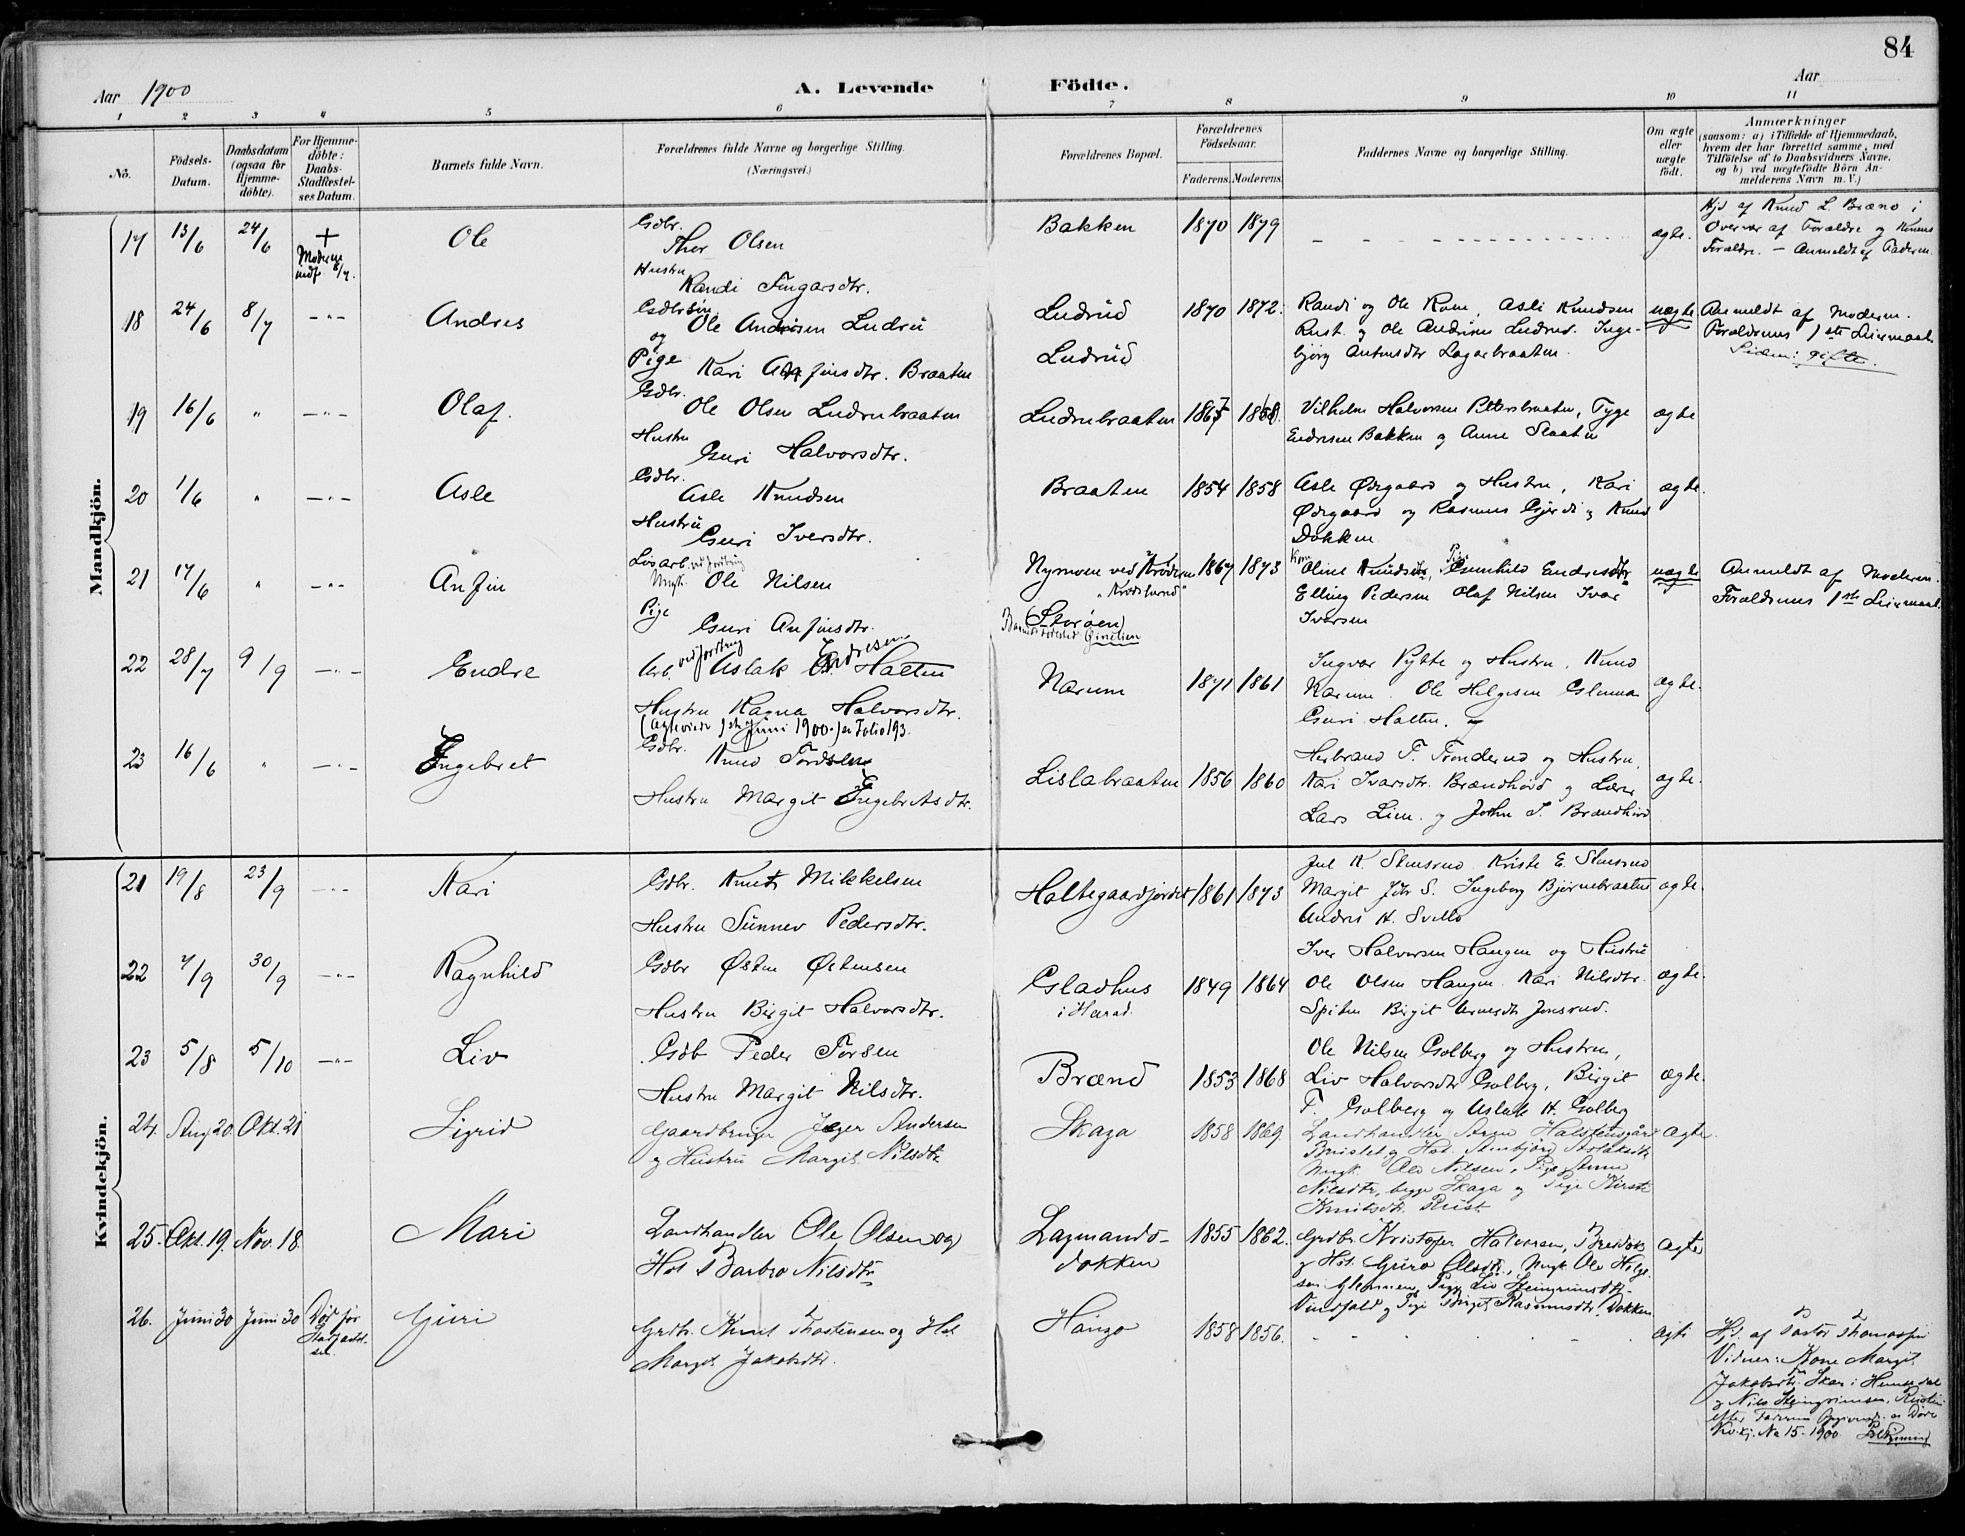 84
Aar 1900
A. Levende Födte.
Aar
1 2 3 4 5 6 7 8 9 10 11
No.
Födsels-Datum.
Daabsdatum (ogsaa for Hjemme-döbte).
For Hjemme-döbte: Daabs-Stadfæstel-ses Datum.
Barnets fulde Navn.
Forældrenes fulde Navne og borgerlige Stilling. (Næringsvei.)
Forældrenes Bopæl.
Forældrenes Födselsaar.
Faderens. Moderens.
Faddernes Navne og borgerlige Stilling.
Om ægte eller uægte födt.
Anmærkninger
(saasom: a) i Tilfælde af Hjemmedaab, hvem der har forrettet samme, med Tilföielse af to Daabsvidners Navne. og b) ved uægtefödte Börn An-melderens Navn m. V.)
Mandkjön.
17 13/6 24/6 + Ole
Gdbr. Thor Olsen
Hustru Randi Fingarsdtr.
Bakken 1870 1879 ægte.
Overvær af Forældre og Konens
Forældre. – Anmeldt af Faderen.
18 24/6 8/7 -"- Andres
Ole Andresen Ludru
og
Pige Kari Anfinsdtr. Braaten
Ludrud
Ludrud
1870 1872.
Randi og Ole Rom, Asle Knudsen
Rust og Ole Andresen Ludrud. Inge-
bjørg
uægte
Anmeldt af Moderen.
Forældrenes 1ste Leiermaal.
Siden: gifte.
19 16/6 " -"- Olaf.
Gdbr. Ole Olsen Ludrubraaten
Hustru Guri Halvorsdtr.
Ludrubraaten
Vilhelm Halvorsen Pettersbraaten, Tyge
Endresen Bakken og Anne Slaaten
ægte
20 1/6 " -"- Asle
Gdbr. Asle Knudsen
Hustru Guri Iversdtr.
Braaten 1854 1858
Asle Ødegaard og Hustru, Kari
Ødegaard og Rasmus Gjerdi og Knud
Dokken
ægte.
21 17/6 " -"- Anfin
Løsarb. Ungk. Ole Nilsen
Pige Guri Anfinsdtr.
Nymoen ved Krøderen
"Krødsherred"
(Storøen)
1867 1873
Oline Knudsdtr, Pige Gunhild Endresdtr
Elling Pedersen Olaf Nilsen Ivar
Iversen
uægte
Anmeldt af Moderen.
Forældrenes 1ste Leiermaal.
22 28/7 9/9 -"- Endre
Arb. Aslak Endresen Halten
Hustru Ragna Halvorsdtr.
Juni 1900.) se Folio 193.
Narum 1871 1861
Ingvar Pytte og Hustru, Knud
Narum. Ole Helgesen Glenna
Guri Halten. og
ægte.
23 16/6 " -"- Ingebret
Gdbr. Knud Tordsen
Hustru Margit Ingebretsdtr.
Lislabraaten 1856 1860
Herbrand T. Tronderud og Hustru,
Kari Ivarsdtr. Brændhovd og Lærer
Lars Liem. og John S. Brændhovd
ægte.
Kvindekjön.
21 19/8 23/9 -"- Kari
Gdbr. Knut Mikkelsen
Hustru Sunnev Pedersdtr.
Haltegaardjordet 1861 1873
Jul K Stensrud Kristi E. Stensrud
Margit Ingeborg Bjørnebraaten
ægte.
22 7/9 30/9 -"- Ragnhild
Gdbr Østen Østensen
Hustru Birgit Halvorsdtr.
Gladhus
1849 1864
Iver Halvorsen Haugen og Hustru
Ole Olsen Haugen Kari Nilsdtr.
Spiten Birgit
ægte.
23 5/8 5/10 -"- Liv
Gdb Peder Torsen
Hustru Margit Nilsdtr.
Brænd 1853 1868
Ole Nilsen Golberg og Hustru,
Liv Halvorsdtr Golberg, Birgit
T. Golberg og Aslak H. Golberg
ægte.
24. Aug 20. Okt. 21 Sigrid
Gaardbruger Jeger Andersen
og Hustru Margit Nilsdtr
Skaga 1858 1869.
Landhandler Arne Halstensgård
Nilsdtr, begge Skaga og Pige Kirsti
Knutsdtr. Rust.
Ægte.
25. Okt. 19. Nov. 18. Mari
Landhandler Ole Olsen og
Hst Barbro Nilsdtr
Lagmands-
dokken
1855 1862.
Grdbr. Kristofer Halvorsen,
og Hst. Guro Olsdtr., Ungk. Ole Helge-
sen Glenna, Pige Liv Steingrimsdtr.
og Pige Birgit Rasmusdtr. Dokken
Ægte
26. Juni 30 Juni 30 Død før Stadfæst-sen. Guri
Grdbr. Knut Thostensen og Hst
Margit Jakobsdtr.
1858 1856. ægte
Hjd. af Pastor Thomassen
Vidner: Kone Margit
Jakobsdtr. Skar i Hemsedal
og Nils Steingrimsen,
No 15 - 1900